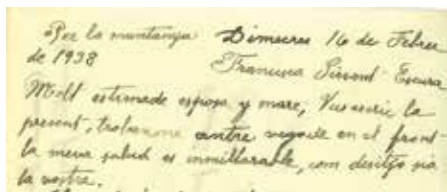 Per la muntanya Dimecres 16 de Febrer
de 1938 Francisca Sirvent Escura
Molt estimade esposa y mare, Vus escric la
present, trobanme antre vegade en el front
la meva salud es inmillorable, com desitjo sia
la vostra.